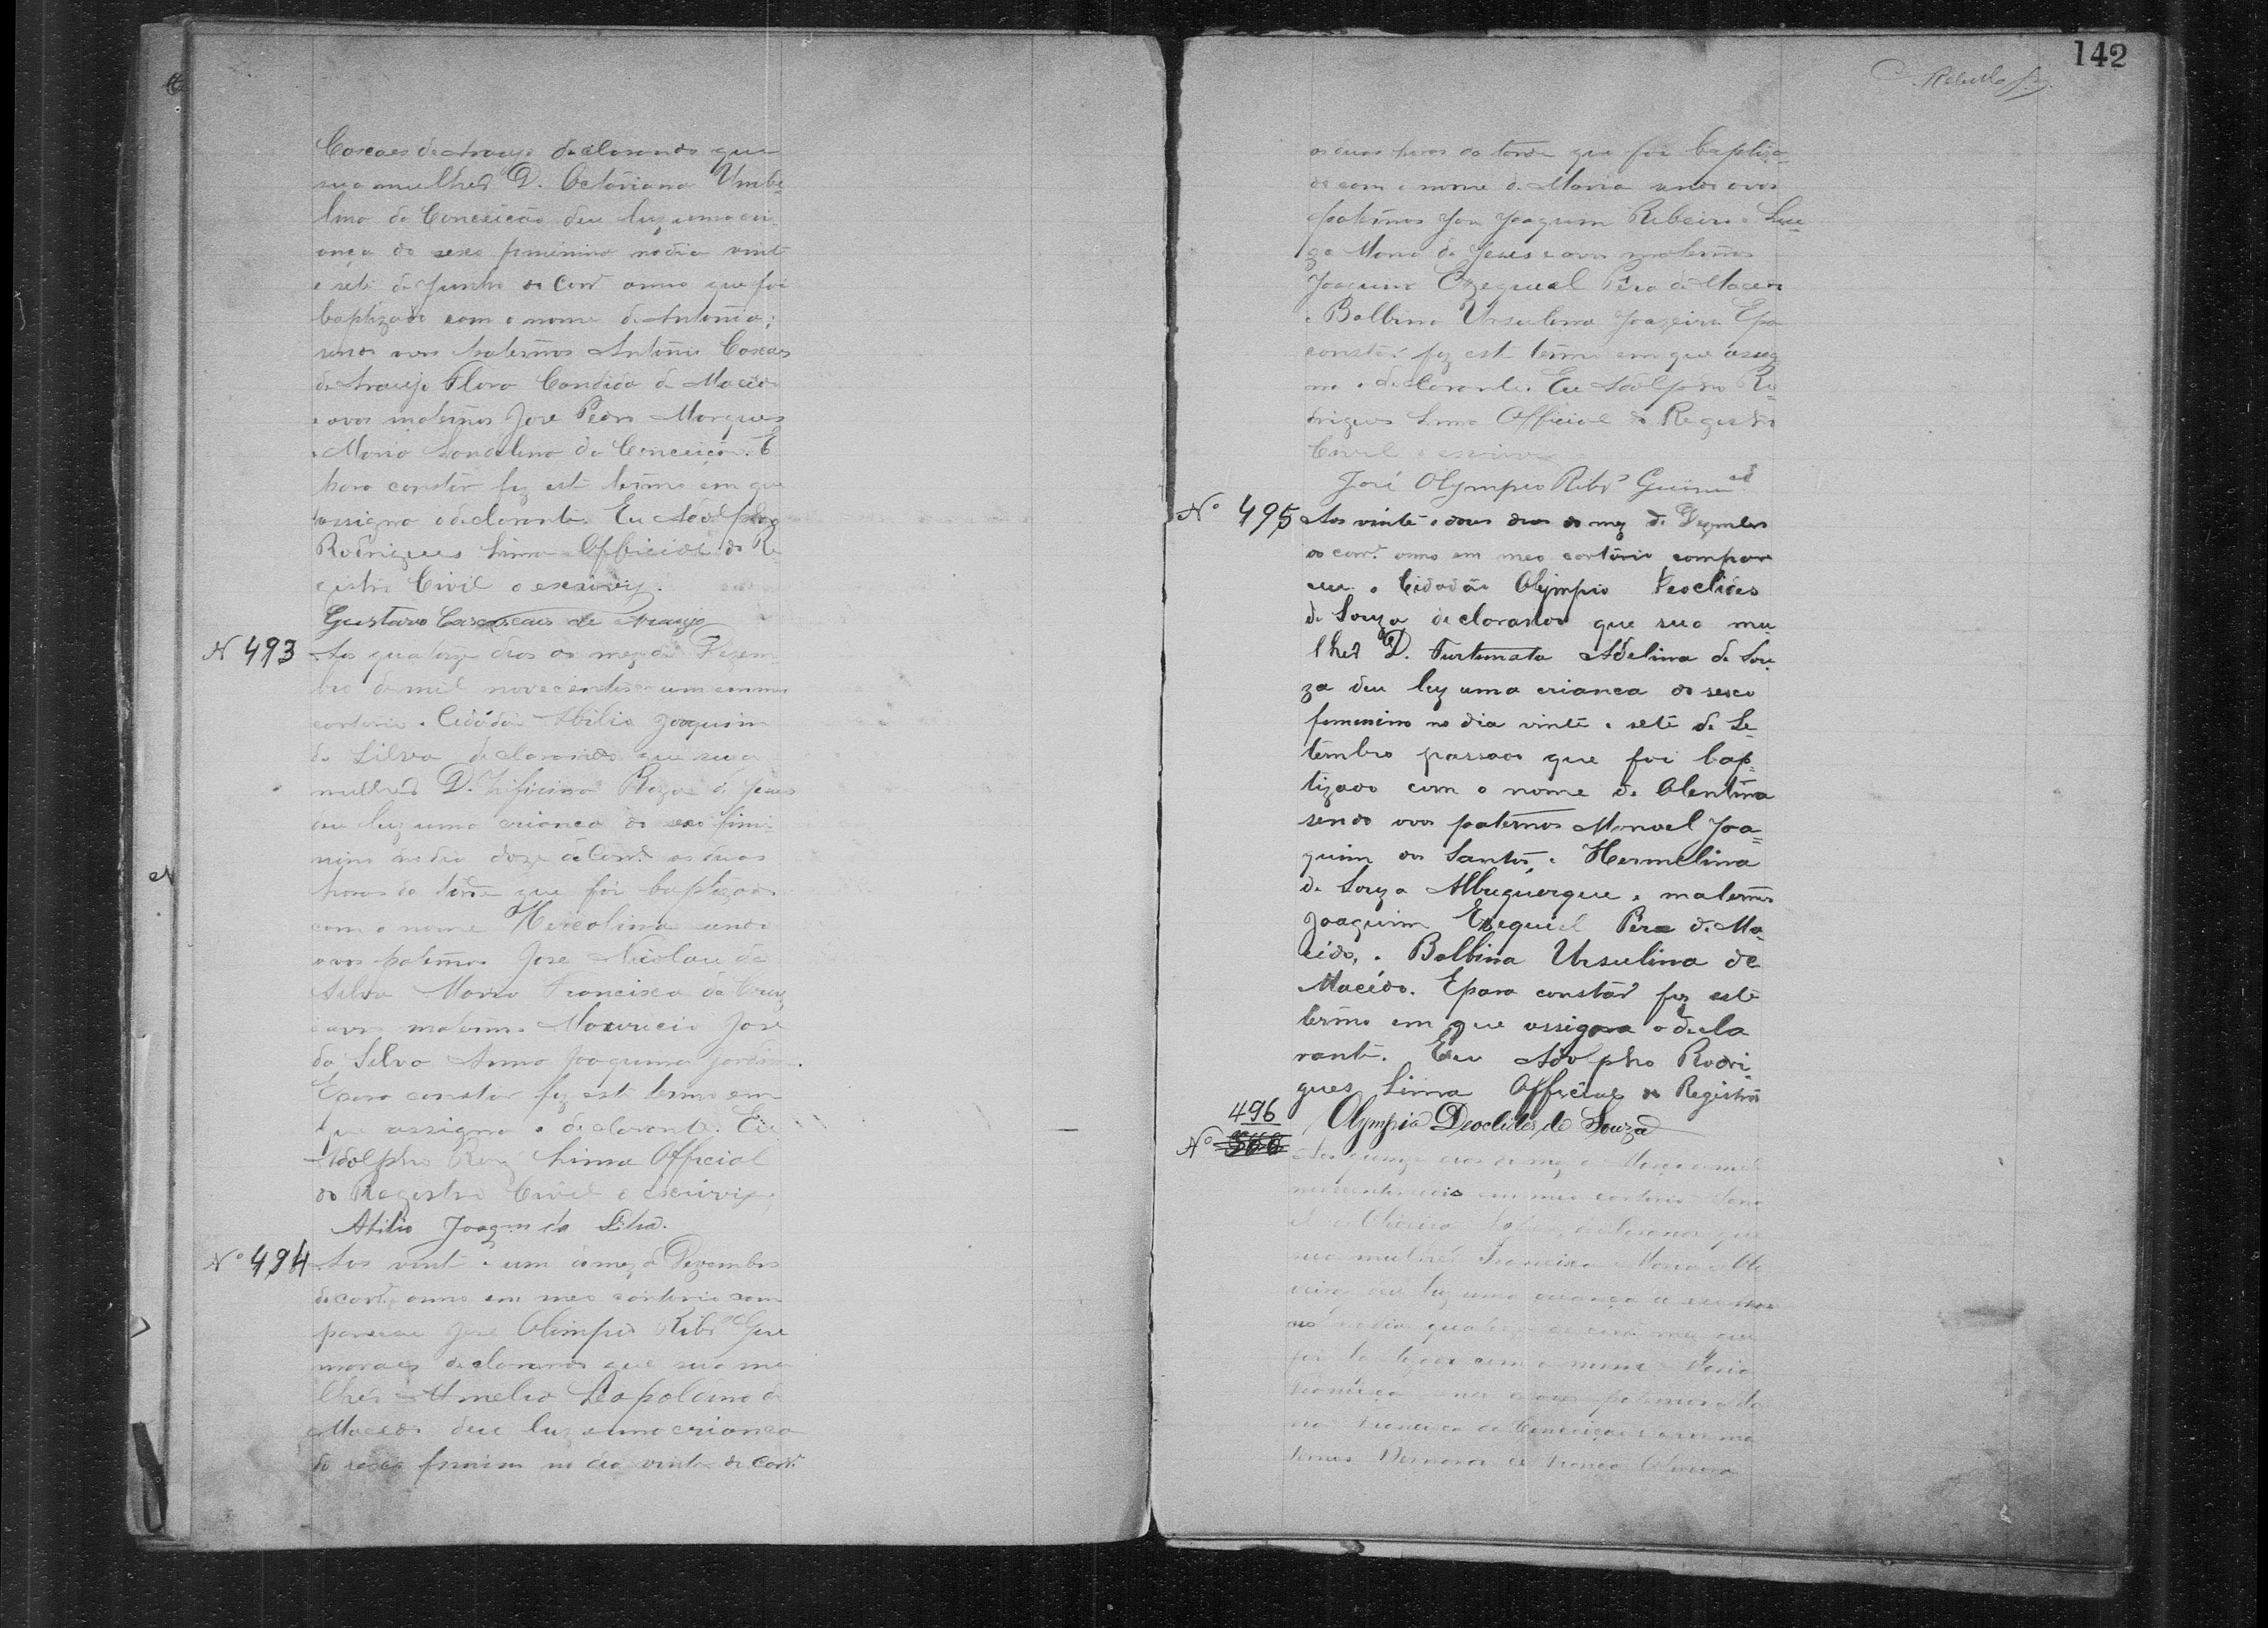 Cascaes de Araujo declarando que
sua mulher D. Octaviana Umbe-
lina da Conceição deu luz uma cri
ança do sexo feminino no dia vinte
e sete de Junho do Corr.e anno que foi
baptizada com o nome de Antonia;
sendo avos paternos Antonio Cascaes
de Araujo Flora Candida de Macedo
e avos maternos José Pedro Marques
e Maria da Conceição. E
para constar fez este termo em que
assigna o declarante. Eu Adolpho
Rodrigues Lima Official do Re-
gistro Civil o escrivi.
Gustavo Cascaes de Araujo
N 493 Aos quatorze dias do mez de Dezem
bro de mil novecentos e um em meu
cartorio o Cidadão Abilio Joaquim
da Silva declarando que sua
mulher D. Roza de Jesus
deu luz uma criança do sexo fimi-
nino no dia doze do Corr.e as duas
horas da tarde que foi baptizada
com o nome Hercolina sendo
avos paternos José Nicolau da
Silva Maria Francisca da Cruz
e avos maternos Mauricio José
da Silva Anna Joaquina Jardim.
E para constar fez este termo em
que assigna o declarante. Eu
Adolpho Roiz Lima Official
do Registro Civil o escrivi
Abilio Joaqm da Silva.
Nº 494 Aos vinte e um do mez de Dezembro
do corr.e anno em meo cartorio com
pareceu José Olimpio Ribr.o Gui
maraes declarando que sua mu
lher Amelia Leopoldina de
Macedo deu luz uma criança
do sexo feminino no dia vinte do Corr.e
142
C. Rebello
as duas horas da tarde que foi baptiza-
da com o nome de Maria sendo avos
paternos José Joaquim Ribeiro e Lui-
za Maria de Jesus e avos maternos
Joaquim Ezequiel Péra de Macedo
e Balbina Ursulina Joazeira. E pa
constar fez este termo em que assig
na o declarante. Eu Adolpho Ro-
drigues Lima Official do Registro
Civil o escrivi
José Olympio Ribr.o Guim.es
Nº 495 Aos vinte e dous dias do mez de Dezembro
do corr.e anno em meo cartorio compare
ceu o Cidadão Olympio Deoclides
de Souza declarando que sua mu
lher D. Furtunata Adelina de Sou
za deu luz uma crianca do sexo
femenino no dia vinte e sete de Se
tembro passado que foi bap-
tizado com o nome de Olentina
sendo avos paternos Manoel Joa-
quim dos Santos e Hermelina
de Souza Albuquerque e maternos
Joaquim Ezequiel Péra de Ma-
cêdo, e Balbina Ursulina de
Macêdo. E para constar fez este
termo em que assigna o decla
rante. Eu Adolpho Rodri-
gues Lima Official do Registro
496 Olympio Deoclides de Souza
Nº 566 Aos quinze dias do mez de Março de mil
novecentos e dois em meo cartorio
Oliveira declarando que
sua mulher Francisca Maria de Oli
veira deu luz uma criança do sexo
no dia quatorze do corr.e mez que
foi baptizada com o nome Maria
Francisca avos paternos
Francisca da Conceição e avos ma
ternos Oliveira